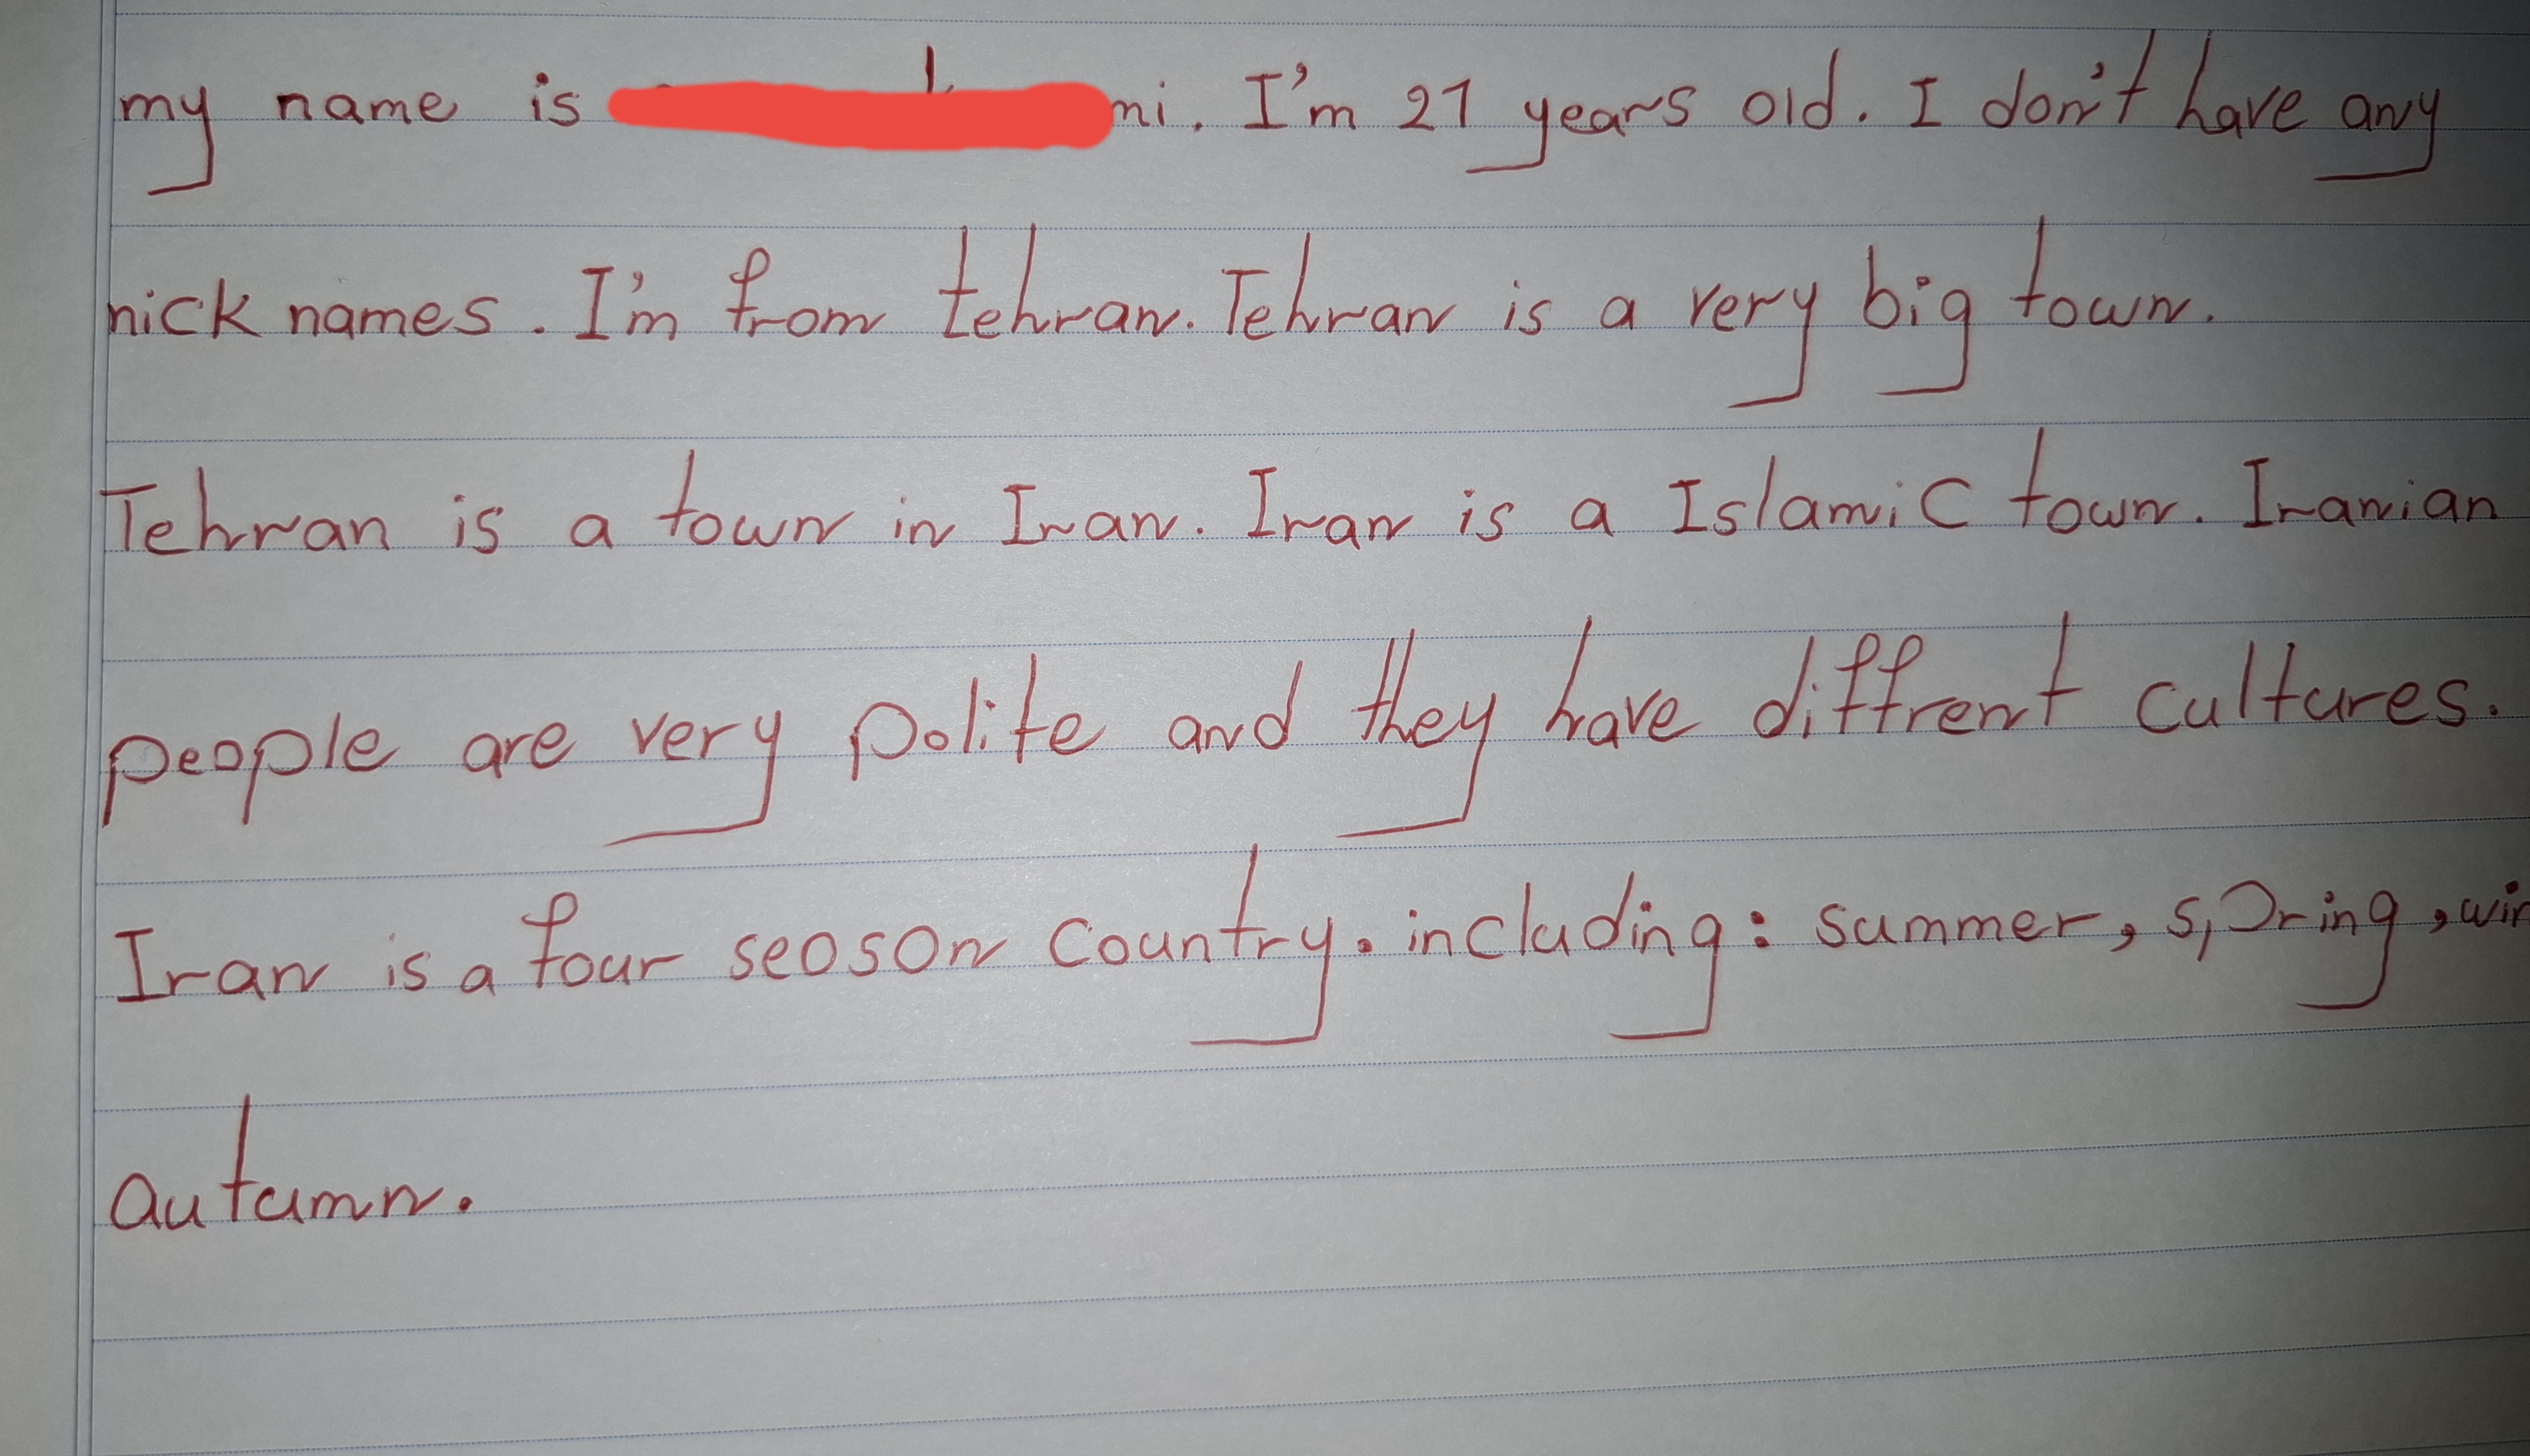 my name is mi. I'm 21 years old. I don't have any
nick names. I'm from tehran. Tehran is a very big town.
Tehran is a town in Iran. Iran is a Islamic town. Iranian
people are very polite and they have diffrent cultures.
Iran is a four seoson country. including: summer, spring,
autumn.